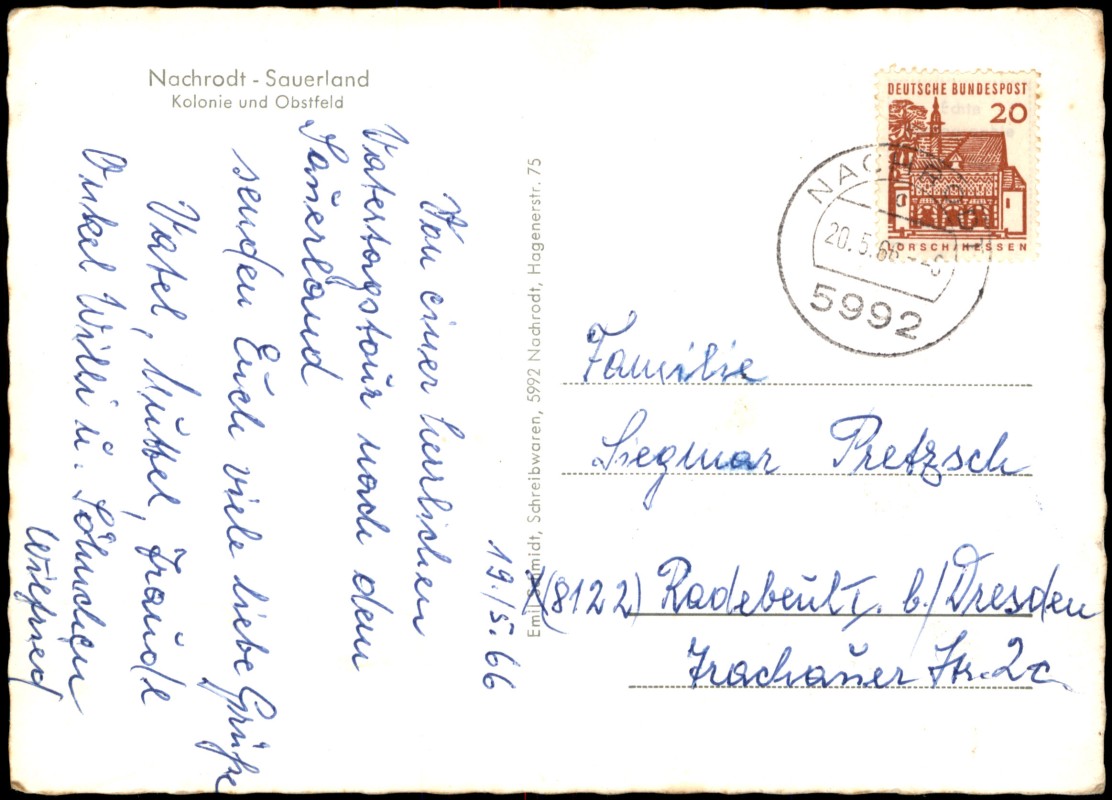 Nachrodt - Sauerland
Kolonie und Obstfeld
19./5. 66
Von einer herrlichen
Vatertagstour nach dem
Sauerland
senden Euch viele liebe Grüße
Vatel, Muttel, Traude
Onkel Willi u. Söhnchen
Wilfried
Emil Schmidt, Schreibwaren, 5992 Nachrodt, Hagenerstr. 75
DEUTSCHE BUNDESPOST
20
LORSCH/HESSEN
20.5.66
5992
Familie
Siegmar Pretzsch
(8122) Radebeul I. b./Dresden
Trachauer Str. 2c